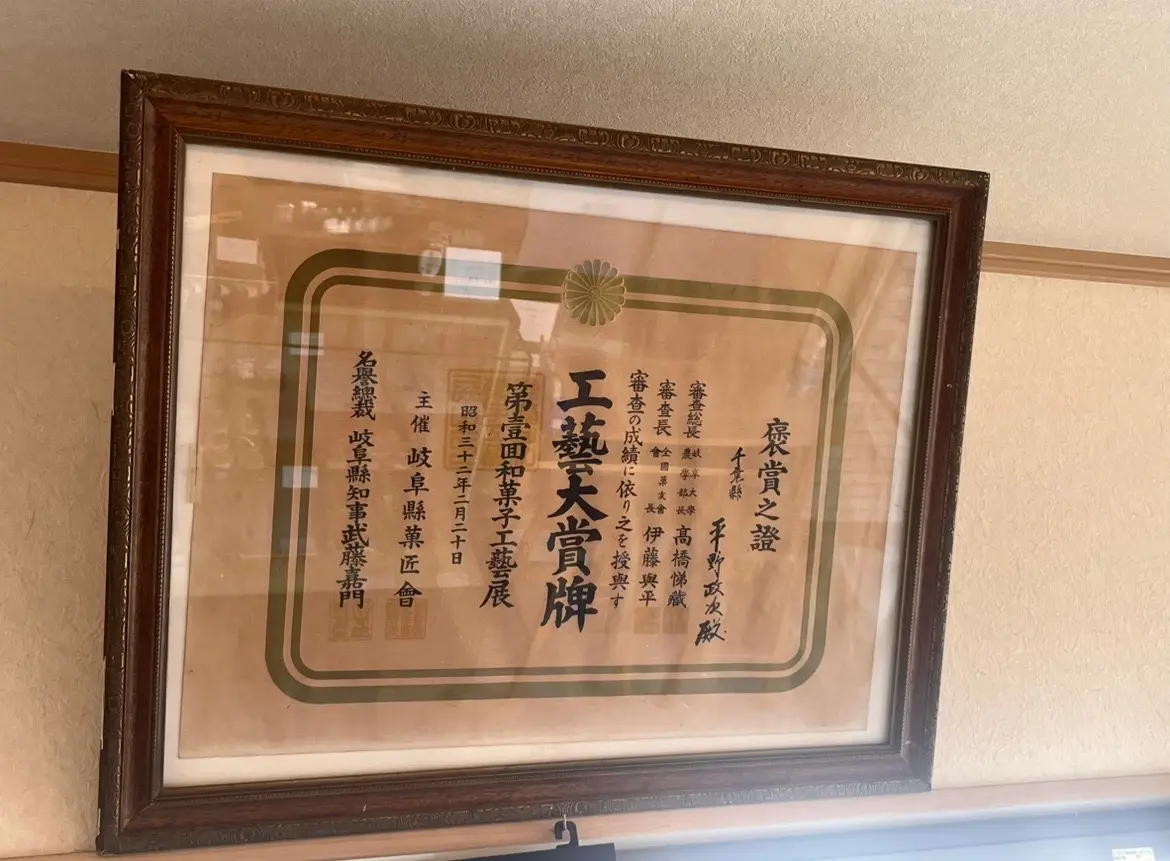 褒賞之證
千葉縣
平野政次殿
審査の成績に依り之を授與す
審査長 全國菓友會會長 伊藤與平
審査総長 岐阜大學農學部長 高橋悌藏
工藝大賞牌
第壹回和菓子工藝展
昭和三十二年二月二十日
主催 岐阜縣菓匠會
名譽總裁 岐阜縣知事武藤嘉門